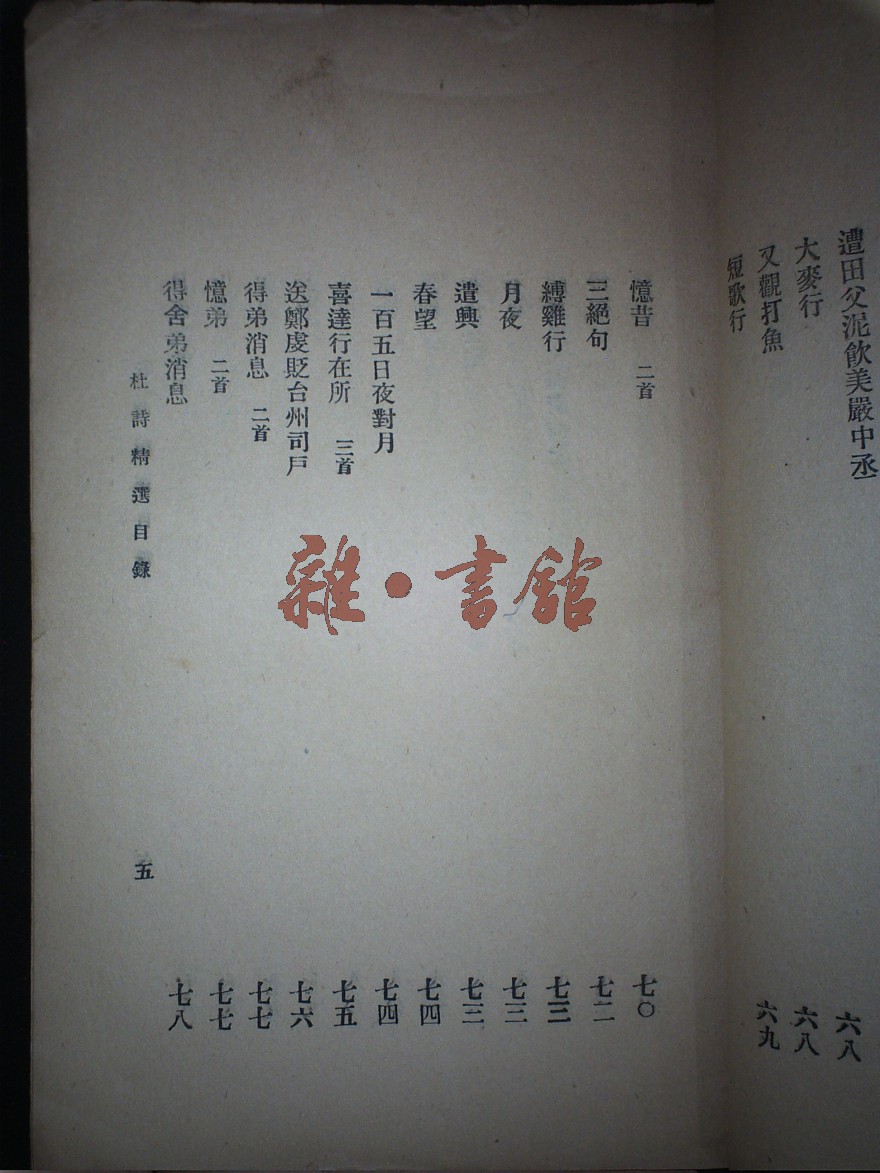 遭田父泥飲美嚴中丞 六八
大麥行 六八
又觀打魚 六九
短歌行
憶昔 二首 七〇
三絕句 七二
縛雞行 七三
月夜 七三
遣興 七三
春望 七四
一百五日夜對月 七四
喜達行在所 三首 七五
送鄭虔貶台州司戶 七六
得弟消息 二首 七七
憶弟 二首 七七
得舍弟消息 七八
杜詩精選目錄 五
雜·書館